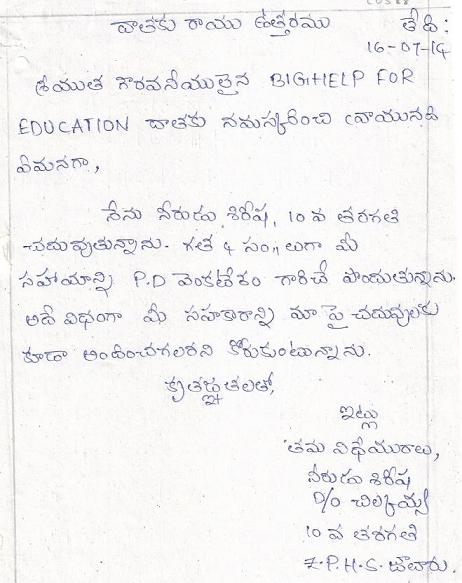 దాతకు రాయు ఉత్తరము తేది:
16-07-14
శ్రీయుత గౌరవనీయులైన BIGHELP FOR
EDUCATION దాతకు నమస్కరించి వ్రాయునది
ఏమనగా,
నేను నీరుడు శిరీష, 10 వ తరగతి
చదువుతున్నాను. గత 4 సం,, లుగా మీ
సహాయాన్ని P.D వెంకటేశం గారిచే పొందుతున్నాను.
అదే విధంగా మీ సహకారాన్ని మా పై చదువులకు
కూడా అందించగలరని కోరుకుంటున్నాను.
కృతజ్ఞతలతో,
ఇట్లు
తమ విధేయురాలు,
నీరుడు శిరీష
D/o
10 వ తరగతి
Z.P.H.S.